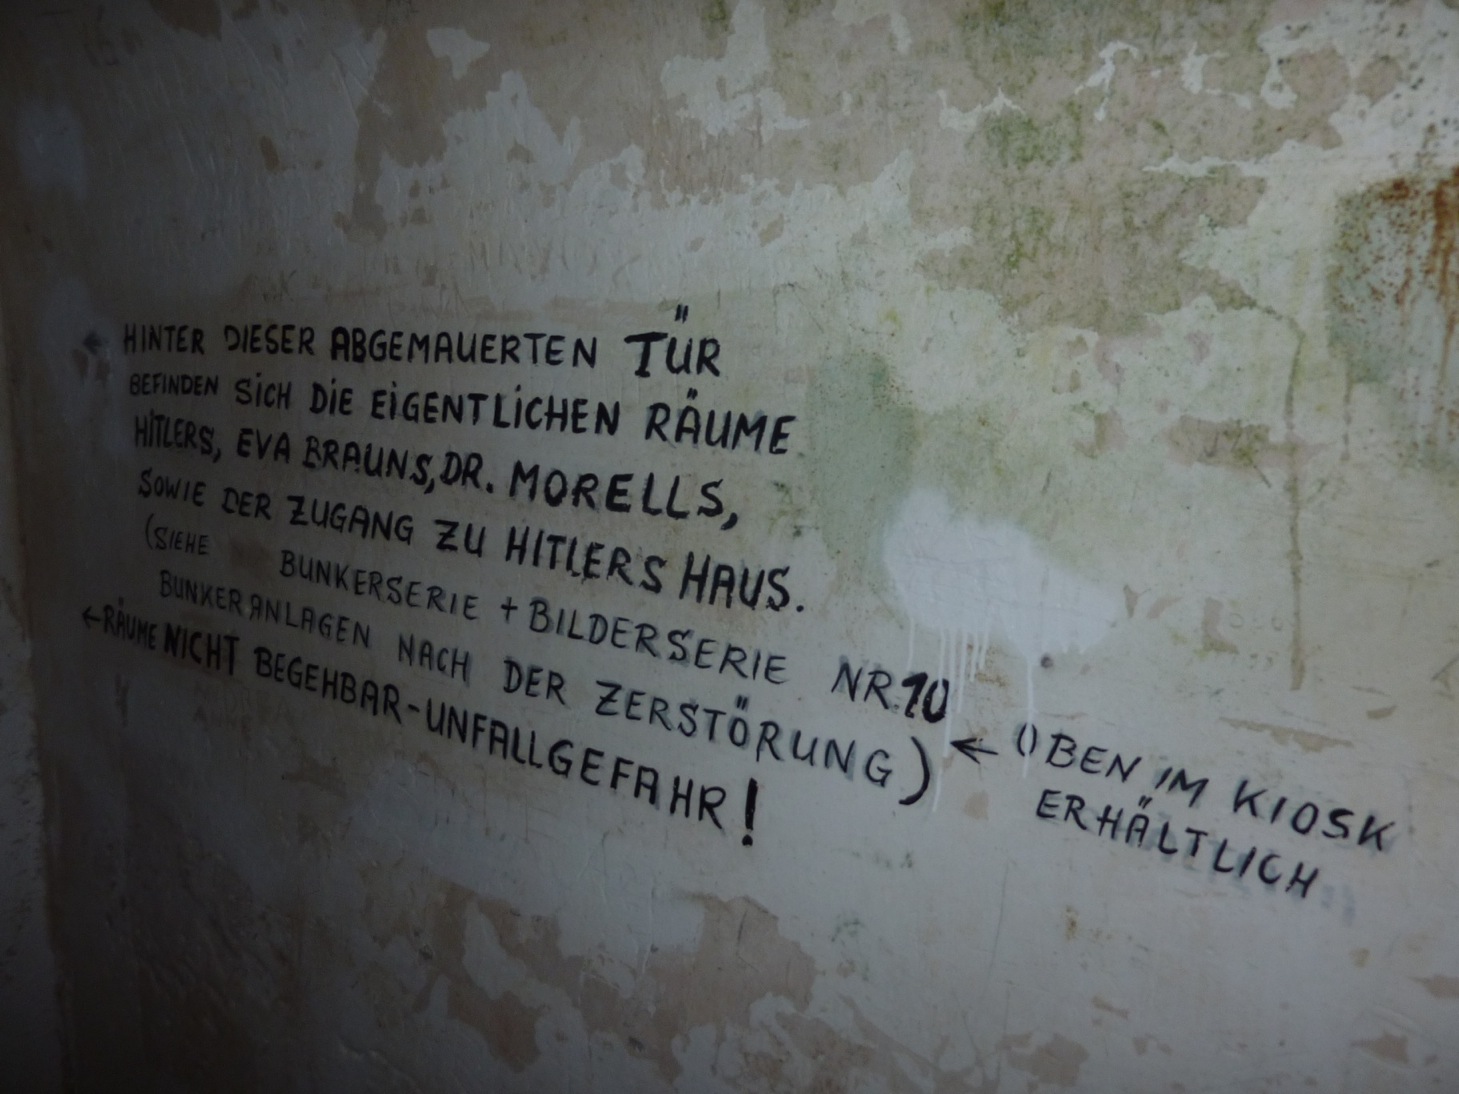 HINTER DIESER ABGEMAUERTEN TÜR
BEFINDEN SICH DIE EIGENTLICHEN RÄUME
HITLERS, EVA BRAUNS, DR. MORELLS,
SOWIE DER ZUGANG ZU HITLERS HAUS.
(SIEHE BUNKERSERIE + BILDERSERIE NR. 10
BUNKERANLAGEN NACH DER ZERSTÖRUNG)
← OBEN IM KIOSK
ERHÄLTLICH
← RÄUME NICHT BEGEHBAR - UNFALLGEFAHR!